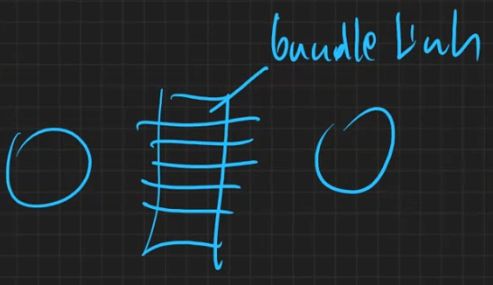 bundle Link